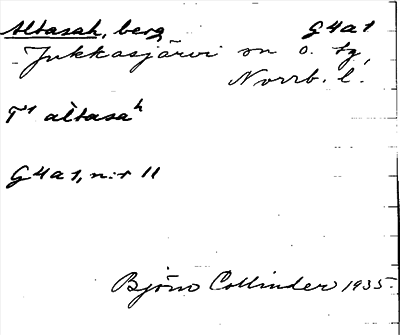 Altasah, berg G4a1
Jukkasjärvi sn o. tg,
Norrb. l.
T1 altasah
G4a1, n:r 11
Björn Collinder 1935.